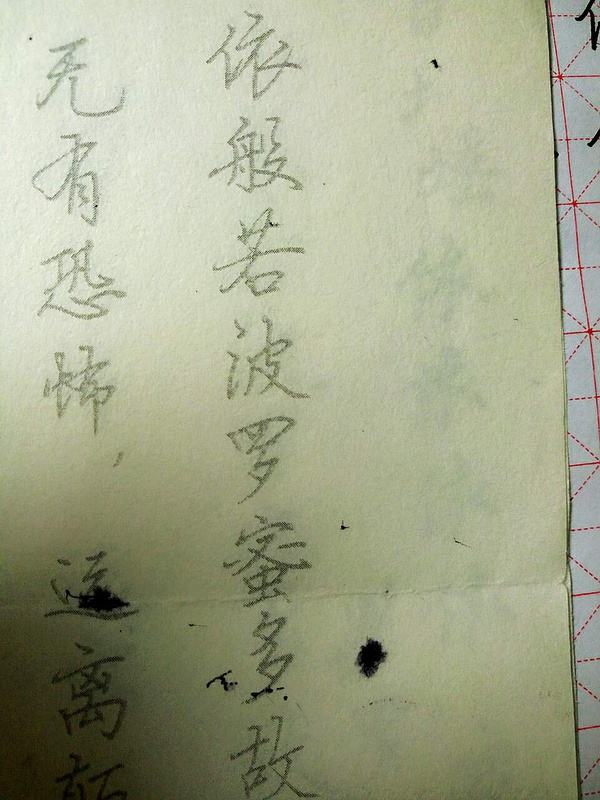 依般若波罗蜜多故
无有恐怖，远离颠